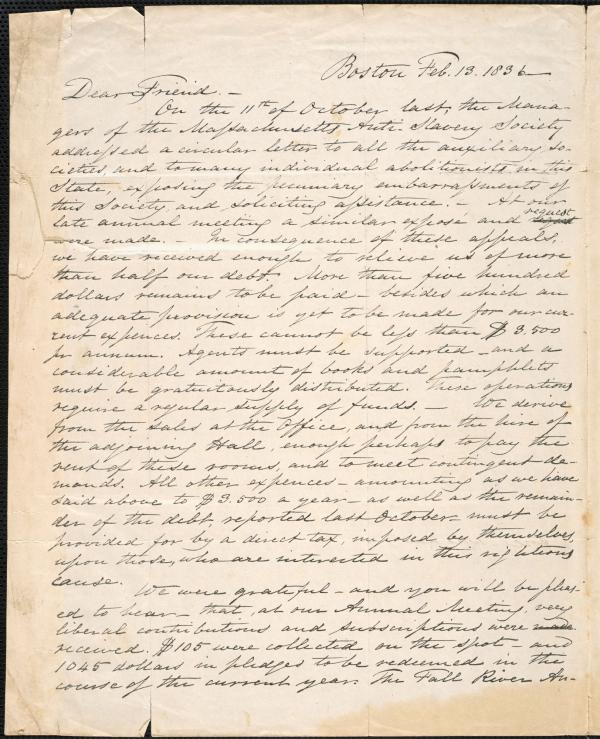 Boston Feb. 13. 1836
Dear Friend. -
On the 11th of October last, the Mana-
gers of the Massachusetts Anti-Slavery Society
addressed a circular letter to all the auxiliary so-
cieties, and to many individual abolitionists in this
State, exposing the pecuniary embarrassments of
this Society, and soliciting assistance. - At our
late annual meeting a similar exposé and request
were made. - In consequence of these appeals,
we have received enough to relieve us of more
than half our debt. More than five hundred
dollars remains to be paid - besides which an
adequate provision is yet to be made for our cur-
rent expences. These cannot be less than $3.500
pr annum. Agents must be supported - and a
considerable amount of books and pamphlets
must be gratuitously distributed. These operations
require a regular supply of funds. - We derive
from the sales at the Office, and from the hire of
the adjoining Hall, enough perhaps to pay the
rent of these rooms, and to meet contingent de-
mands. All other expences - amounting as we have
said above to $3.500 a year - as well as the remain-
der of the debt, reported last October - must be
provided for by a direct tax, imposed by themselves,
upon those, who are interested in this righteous
cause.
We were grateful - and you will be pleas-
ed to hear - that, at our Annual Meeting, very
liberal contributions and subscriptions were made
received. $105 were collected on the spot - and
1045 dollars in pledges to be redeemed in the
course of the current year. The Fall River An-